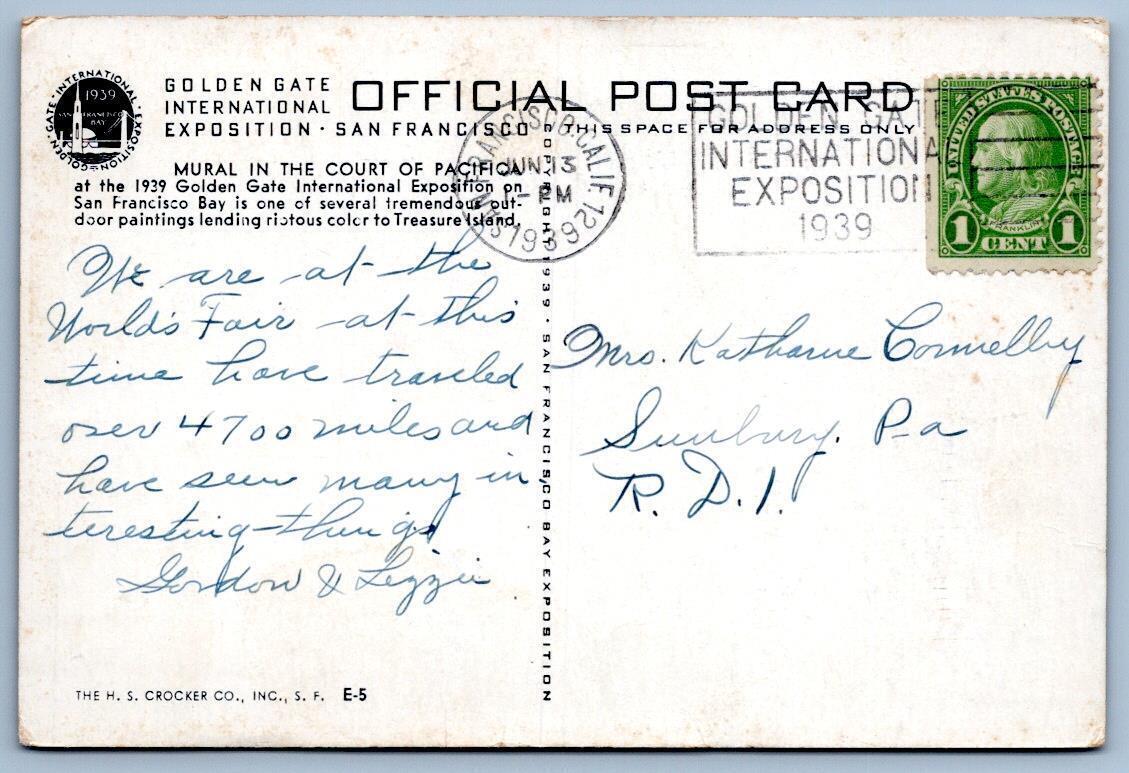 GOLDEN GATE · INTERNATIONAL · EXPOSITION ·
1939
SAN FRANCISCO
BAY
GOLDEN GATE
INTERNATIONAL
EXPOSITION · SAN FRANCISCO
OFFICIAL POST CARD
THIS SPACE FOR ADDRESS ONLY
MURAL IN THE COURT OF PACIFICA
at the 1939 Golden Gate International Exposition on
San Francisco Bay is one of several tremendous out-
door paintings lending riotous color to Treasure Island.
SAN FRANCISCO, CALIF. 12
JUN 13
PM
1939
GOLDEN GATE
INTERNATIONAL
EXPOSITION
1939
UNITED STATES POSTAGE
FRANKLIN
1 CENT 1
We are at the
World's Fair at this
time have traveled
over 4700 miles and
have seen many in
teresting things
Gordon & Lizzie
1939 · SAN FRANCISCO BAY EXPOSITION
Mrs. Katharine Connelly
Sunbury. Pa
R. D. 1.
THE H. S. CROCKER CO., INC., S. F. E-5